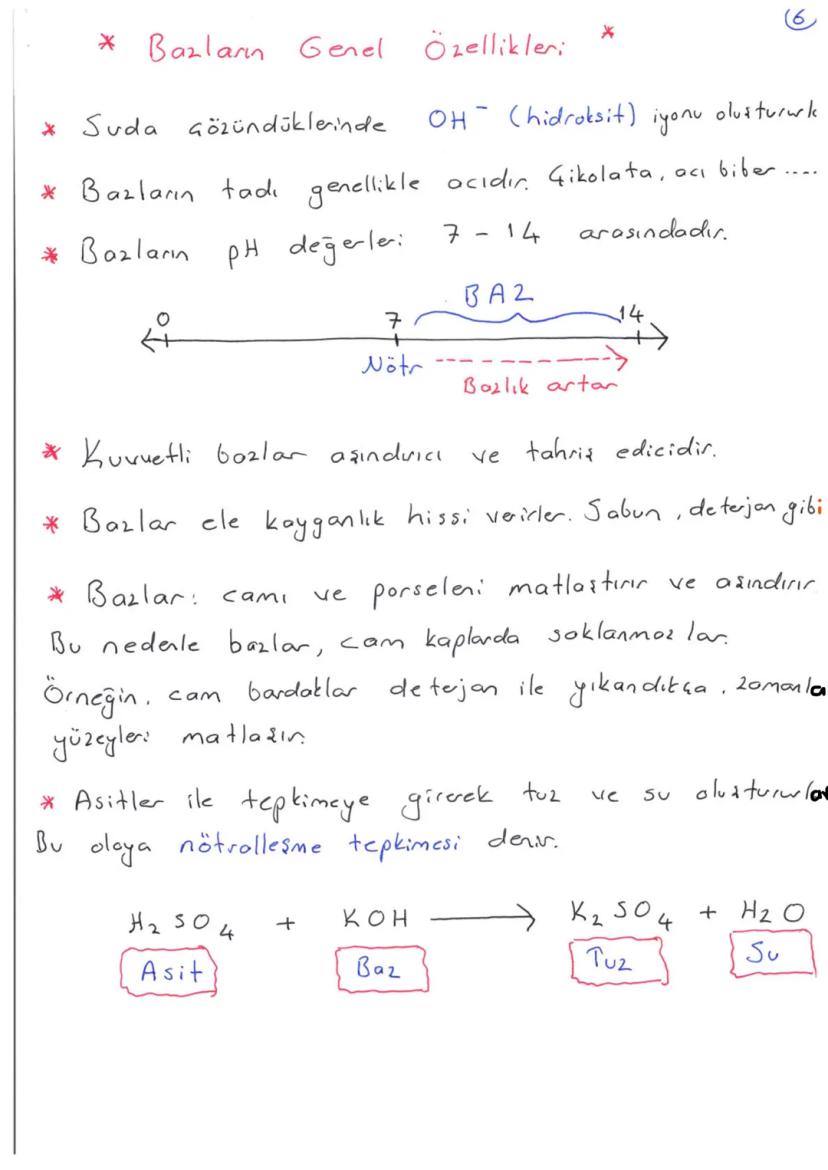 6
* Bazların Genel Özellikleri *
* Suda çözündüklerinde OH⁻ (hidroksit) iyonu oluştururlar
* Bazların tadı genellikle acıdır. Çikolata, acı biber ....
* Bazların pH değerleri 7 - 14 arasındadır.
BAZ
0 7 14
Nötr
Bazlık artar
* Kuvvetli bazlar aşındırıcı ve tahriş edicidir.
* Bazlar ele kayganlık hissi verirler. Sabun, deterjan gibi
* Bazlar: camı ve porseleni matlaştırır ve aşındırır
Bu nedenle bazlar, cam kaplarda saklanmazlar.
Örneğin, cam bardaklar deterjan ile yıkandıkça, zamanla
yüzeyleri matlaşır.
* Asitler ile tepkimeye girerek tuz ve su oluştururlar
Bu olaya nötralleşme tepkimesi denir.
H₂SO₄ + KOH ⟶ K₂SO₄ + H₂O
Asit Baz Tuz Su